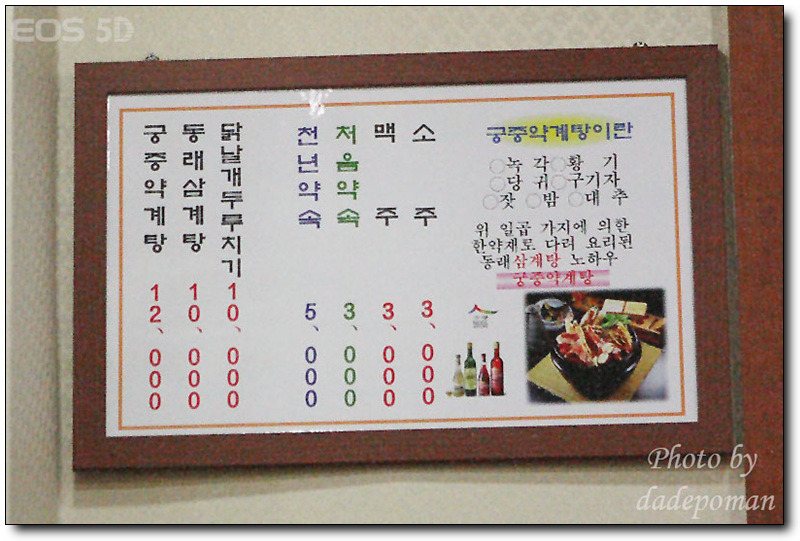 EOS 5D
궁중약계탕 12,000
동래삼계탕 10,000
닭날개두루치기 10,000
천년약속 5,000
처음약속 3,000
맥주 3,000
소주 3,000
궁중약계탕이란
○녹각○황기
○당귀○구기자
○잣 ○밤 ○대추
위 일곱 가지에 의한
한약재로 다려 요리된
동래삼계탕 노하우
궁중약계탕
Photo by
dadepoman